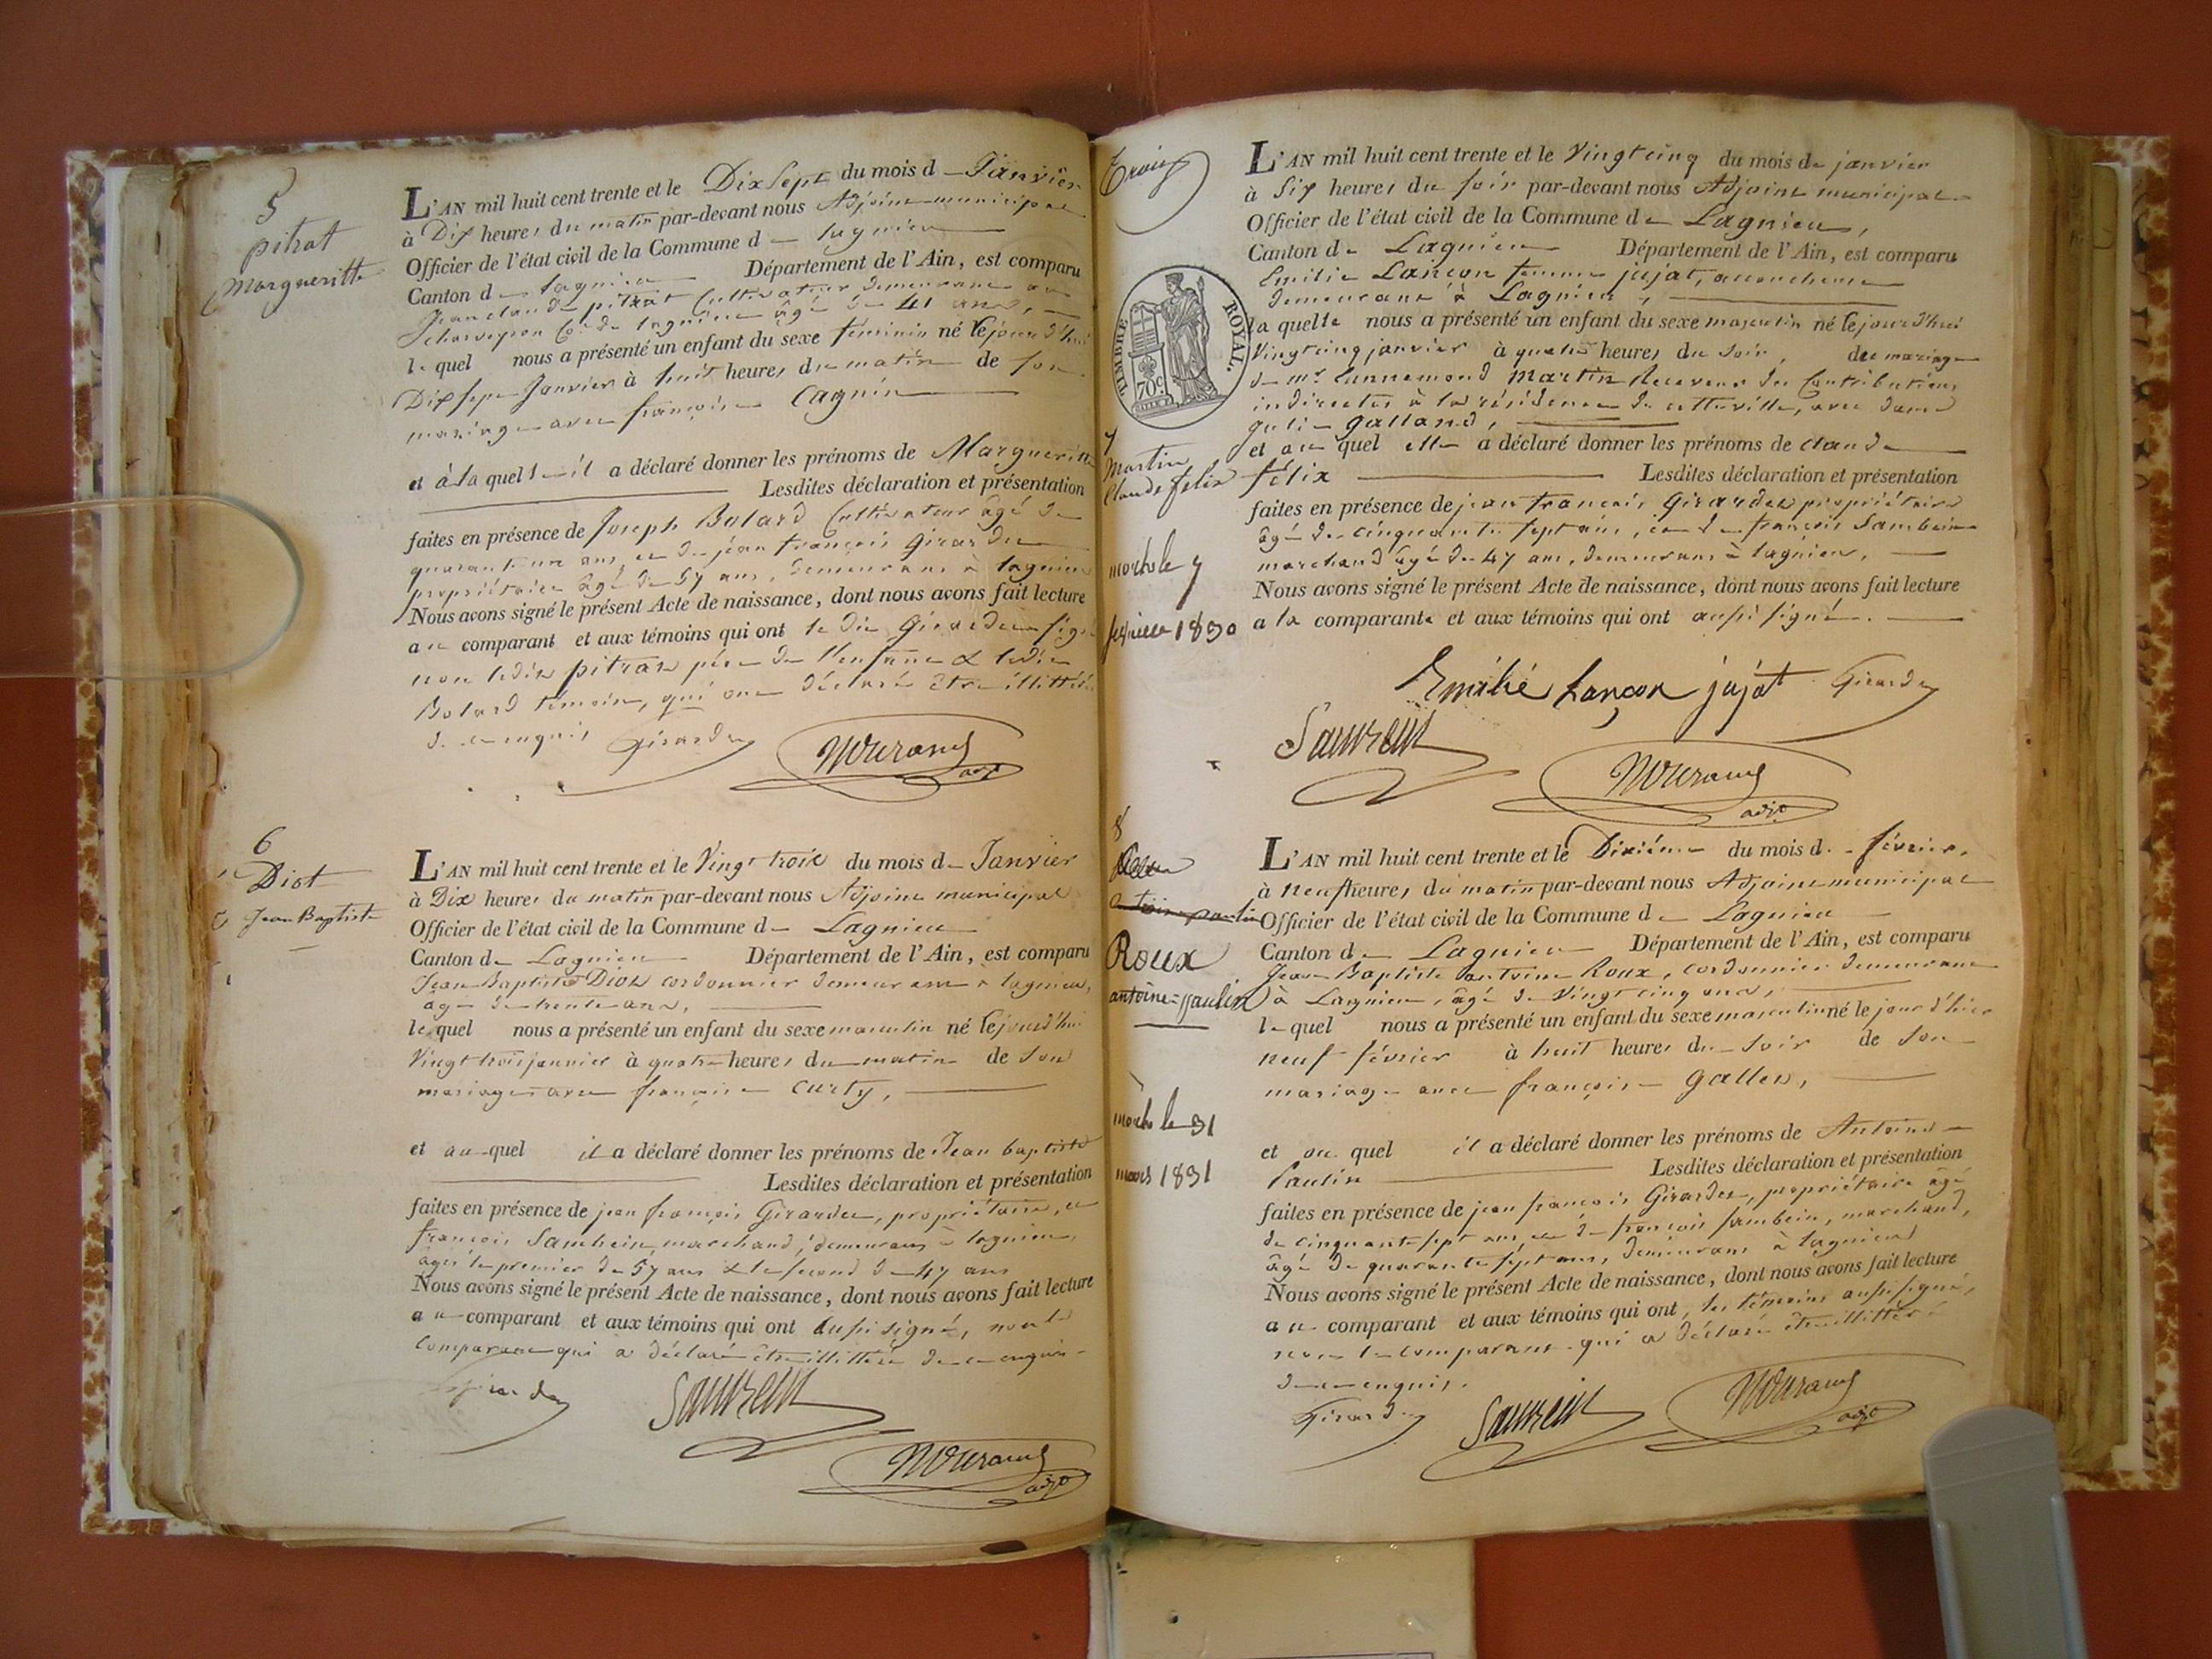 5
pitrat
Margueritte
L'AN mil huit cent trente et le Dix Sept du mois d - Janvier
à Dix heures du matin par-devant nous Adjoint municipal
Officier de l'état civil de la Commune d - Lagnieu
Canton de Lagnieu Département de l'Ain, est comparu
Jean claude pitrat Cultivateur demeurant au
Charveyron Cne de lagnieu âgé de 41 ans,
le quel nous a présenté un enfant du sexe féminin né le jourd'hui
Dix sept Janvier à huit heures du matin de son
mariage avec françoise Cagnin
et à la quelle il a déclaré donner les prénoms de Margueritte
Lesdites déclaration et présentation
faites en présence de Joseph Bolard Cultivateur âgé de
quarante un ans, et de jean françois Girardet
propriétaire âgé de 57 ans, demeurans à lagnieu
Nous avons signé le présent Acte de naissance, dont nous avons fait lecture
au comparant et aux témoins qui ont le dit Girardet signé
non ledit pitrat père de l'enfant & ledit
Bolard témoin, qui ont déclaré être illittérés
de ce enquis Girardet
adjt
6
Diot
Jean Baptiste
L'AN mil huit cent trente et le Vingt trois du mois de Janvier
à Dix heures du matin par-devant nous Adjoint municipal
Officier de l'état civil de la Commune d - Lagnieu
Canton de Lagnieu Département de l'Ain, est comparu
Jean Baptiste Diot cordonnier demeurant à lagnieu,
âgé de trente ans,
le quel nous a présenté un enfant du sexe masculin né le jourd'hui
Vingt trois janvier à quatre heures du matin de son
mariage avec françoise Curty,
et au quel il a déclaré donner les prénoms de Jean baptiste
Lesdites déclaration et présentation
faites en présence de jean françois Girardet, propriétaire, et
françois Sambein marchand, demeurans à lagnieu,
âgés le premier de 57 ans & le second de 47 ans
Nous avons signé le présent Acte de naissance, dont nous avons fait lecture
au comparant et aux témoins qui ont aussi signé, non le
comparant qui a déclaré être illittéré de ce enquis
Girardet Sambein
adjt
Trois
TIMBRE ROYAL.
70c
L'AN mil huit cent trente et le Vingt cinq du mois de janvier
à Six heures du soir par-devant nous Adjoint municipal
Officier de l'état civil de la Commune de Lagnieu,
Canton de Lagnieu Département de l'Ain, est comparu
Emilie Lançon femme jujat, accoucheuse
demeurant à Lagnieu,
la quelle nous a présenté un enfant du sexe masculin né le jourd'hui
Vingt cinq janvier à quatre heures du soir, du mariage
de mr Ennemond Martin Receveur des Contributions
indirectes à la résidence de cette ville, avec dame
Julie Galland,
7
Martin
Claude félix
et au quel elle a déclaré donner les prénoms de Claude
félix Lesdites déclaration et présentation
faites en présence de jean françois Girardet propriétaire
âgé de cinquante sept ans, et de françois Sambein
marchand âgé de 47 ans, demeurans à lagnieu,
mort le 7
février 1830
Nous avons signé le présent Acte de naissance, dont nous avons fait lecture
a la comparante et aux témoins qui ont aussi signé.
Emilie Lançon jujat Girardet
Sambein
adjt
8
Roux
antoine paulin
Roux
antoine-paulin
L'AN mil huit cent trente et le Dixième du mois de février,
à neuf heures du matin par-devant nous Adjoint municipal
Officier de l'état civil de la Commune d - Lagnieu
Canton de Lagnieu Département de l'Ain, est comparu
Jean Baptiste antoine Roux, cordonnier demeurant
à Lagnieu, âgé de Vingt cinq ans,
le quel nous a présenté un enfant du sexe masculin né le jour d'hier
neuf février à huit heures du soir de son
mariage avec françoise Gallet,
mort le 31
mars 1831
et au quel il a déclaré donner les prénoms de Antoine
Paulin Lesdites déclaration et présentation
faites en présence de jean françois Girardet, propriétaire âgé
de cinquante sept ans, et de françois sambein, marchand,
âgé de quarante sept ans, demeurans à lagnieu
Nous avons signé le présent Acte de naissance, dont nous avons fait lecture
au comparant et aux témoins qui ont, les témoins aussi signé,
non le comparant qui a déclaré être illittéré
de ce enquis.
Girardet Sambein
adjt